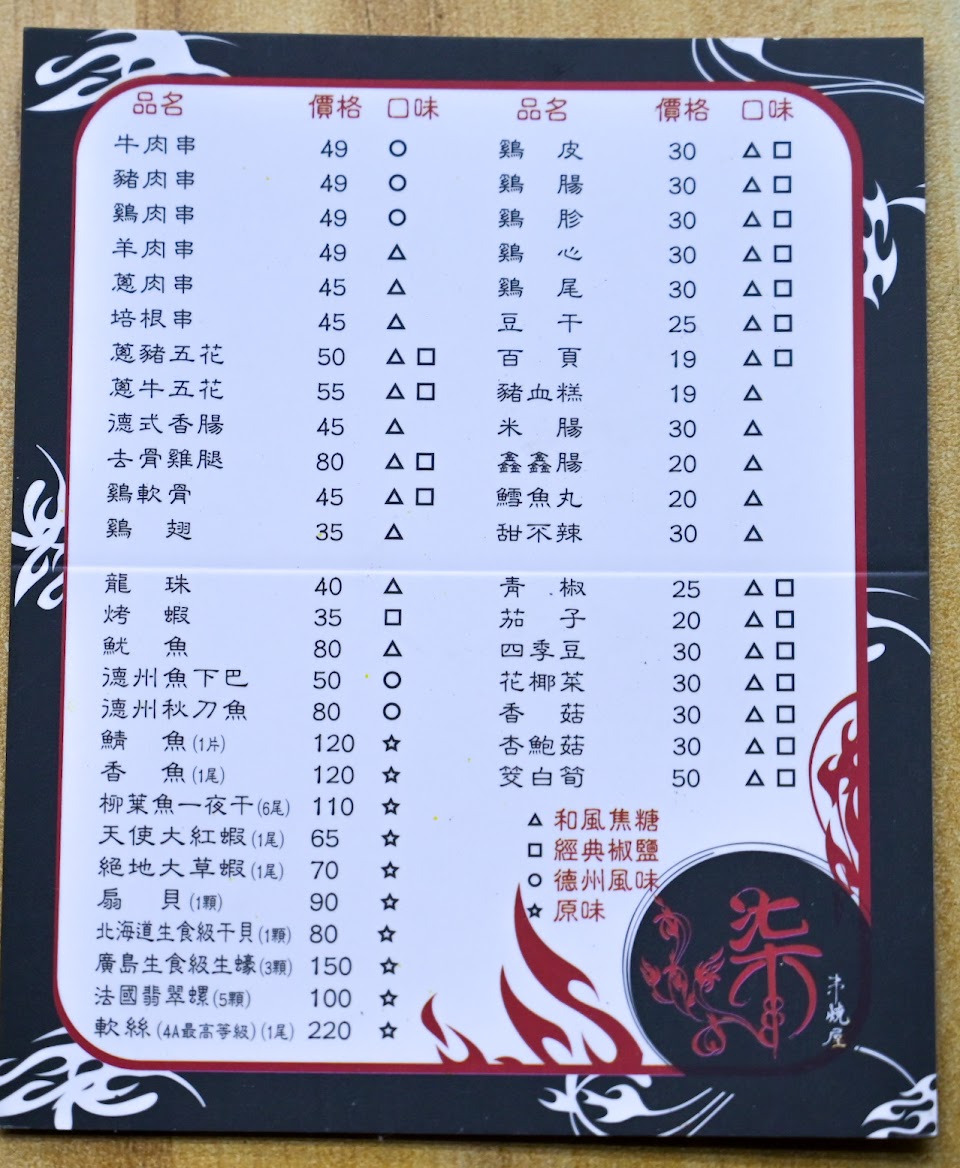 品名 價格 口味
牛肉串 49 ○
豬肉串 49 ○
鷄肉串 49 ○
羊肉串 49 △
蔥肉串 45 △
培根串 45 △
蔥豬五花 50 △ □
蔥牛五花 55 △ □
德式香腸 45 △
去骨雞腿 80 △ □
鷄軟骨 45 △ □
鷄 翅 35 △
龍 珠 40 △
烤 蝦 35 □
魷 魚 80 △
德州魚下巴 50 ○
德州秋刀魚 80 ○
鯖 魚(1片) 120 ☆
香 魚(1尾) 120 ☆
柳葉魚一夜干(6尾) 110 ☆
天使大紅蝦(1尾) 65 ☆
絕地大草蝦(1尾) 70 ☆
扇 貝(1顆) 90 ☆
北海道生食級干貝(1顆) 80 ☆
廣島生食級生蠔(3顆) 150 ☆
法國翡翠螺(5顆) 100 ☆
軟絲(4A最高等級)(1尾) 220 ☆
品名 價格 口味
鷄 皮 30 △ □
鷄 腸 30 △ □
鷄 胗 30 △ □
鷄 心 30 △ □
鷄 尾 30 △ □
豆 干 25 △ □
百 頁 19 △ □
豬血糕 19 △
米 腸 30 △
鑫鑫腸 20 △
鱈魚丸 20 △
甜不辣 30 △
青 椒 25 △ □
茄 子 20 △ □
四季豆 30 △ □
花椰菜 30 △ □
香 菇 30 △ □
杏鮑菇 30 △ □
筊白筍 50 △ □
△ 和風焦糖
□ 經典椒鹽
○ 德州風味
☆ 原味
柒
串燒屋